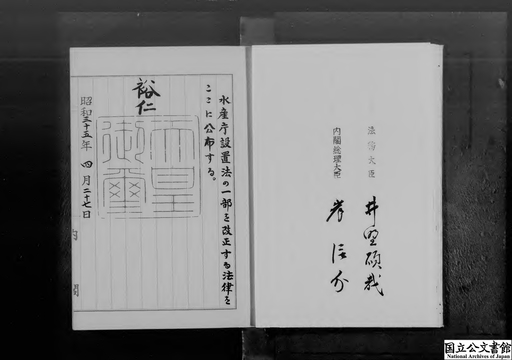 法務大臣 井野碩哉
内閣総理大臣 岸信介
水産庁設置法の一部を改正する法律を
ここに公布する。
裕仁
天皇
御璽
昭和三十五年 四月二十七日
国立公文書館
National Archives of Japan